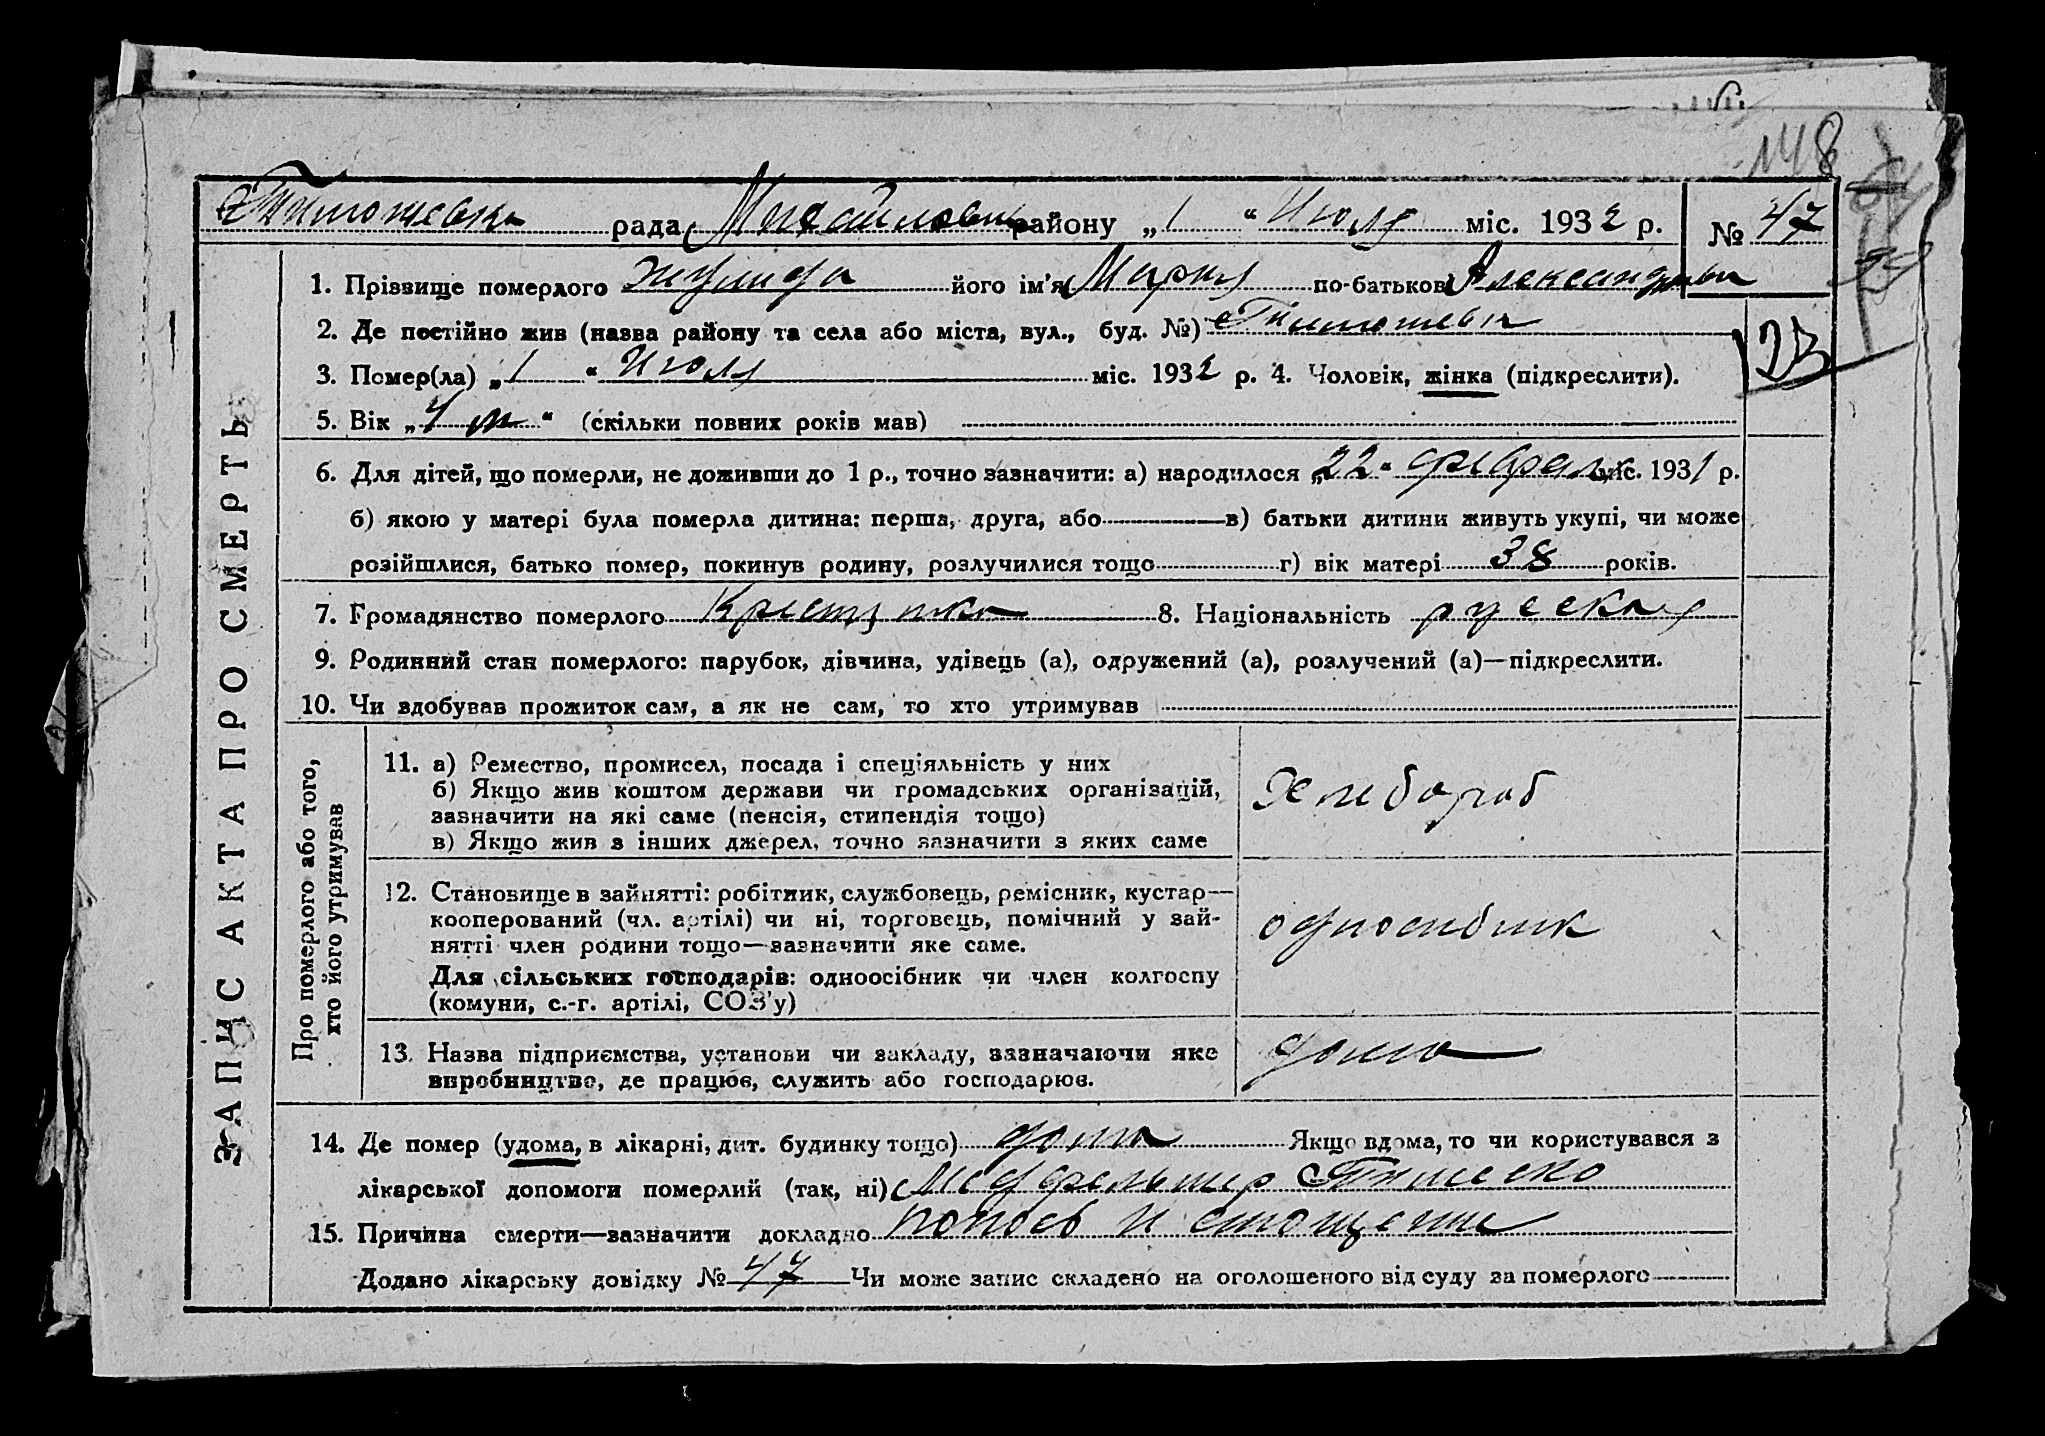 148
Тимошевка рада Михайловск району „1“ Июля міс. 1932 р. № 47
ЗАПИС АКТА ПРО СМЕРТЬ
1. Прізвище померлого його ім'я Мария по-батькові Александровн
2. Де постійно жив (назва району та села або міста, вул., буд. №) Тимошевка
3. Помер(ла) „1“ Июля міс. 1932 р. 4. Чоловік, жінка (підкреслити).
23
5. Вік „4 м“ (скільки повних років мав)
6. Для дітей, що померли, не доживши до 1 р., точно зазначити: а) народилося „22“ февраля міс. 1931 р.
б) якою у матері була померла дитина: перша, друга, або в) батьки дитини живуть укупі, чи може
розійшлися, батько помер, покинув родину, розлучилися тощо г) вік матері 38 років.
7. Громадянство померлого 8. Національність русская
9. Родинний стан померлого: парубок, дівчина, удівець (а), одружений (а), розлучений (а)—підкреслити.
10. Чи здобував прожиток сам, а як не сам, то хто утримував
Про померлого або того,
хто його утримував
11. а) Ремество, промисел, посада і спеціяльність у них
б) Якщо жив коштом держави чи громадських організацій,
зазначити на які саме (пенсія, стипендія тощо)
в) Якщо жив з інших джерел, точно зазначити з яких саме
Хлебораб
12. Становище в зайнятті: робітник, службовець, ремісник, кустар—
кооперований (чл. артілі) чи ні, торговець, помічний у зай-
нятті член родини тощо—зазначити яке саме.
Для сільських господарів: одноосібник чи член колгоспу
(комуни, с.-г. артілі, СОЗ'у)
односибник
13. Назва підприємства, установи чи закладу, зазначаючи яке
виробництво, де працює, служить або господарює.
дома
14. Де помер (удома, в лікарні, дит. будинку тощо) дома Якщо вдома, то чи користувався з
лікарської допомоги померлий (так, ні) Медфельшер
15. Причина смерти—зазначити докладно понос и стощение
Додано лікарську довідку № 47 Чи може запис складено на оголошеного від суду за померлого